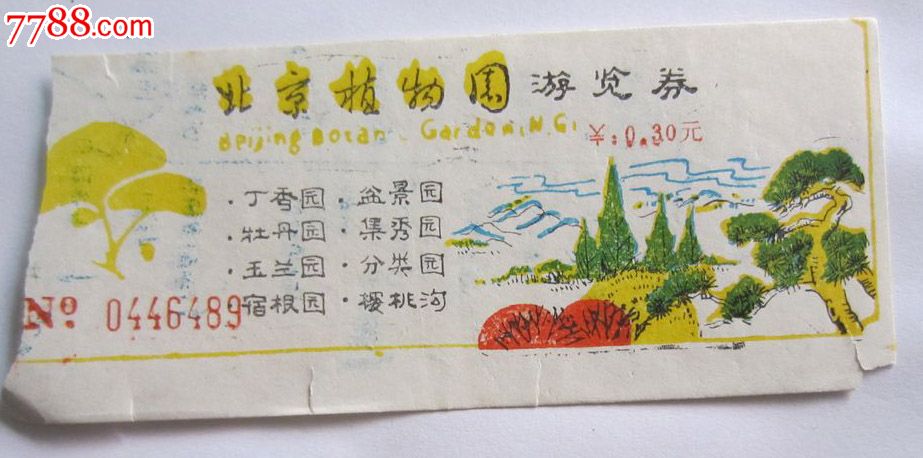 7788.com
北京植物园 游览券
Beijing Botan Garden(N.G)
¥:0.30元
·丁香园·盆景园
·牡丹园·集秀园
·玉兰园·分类园
·宿根园·樱桃沟
№ 0446489